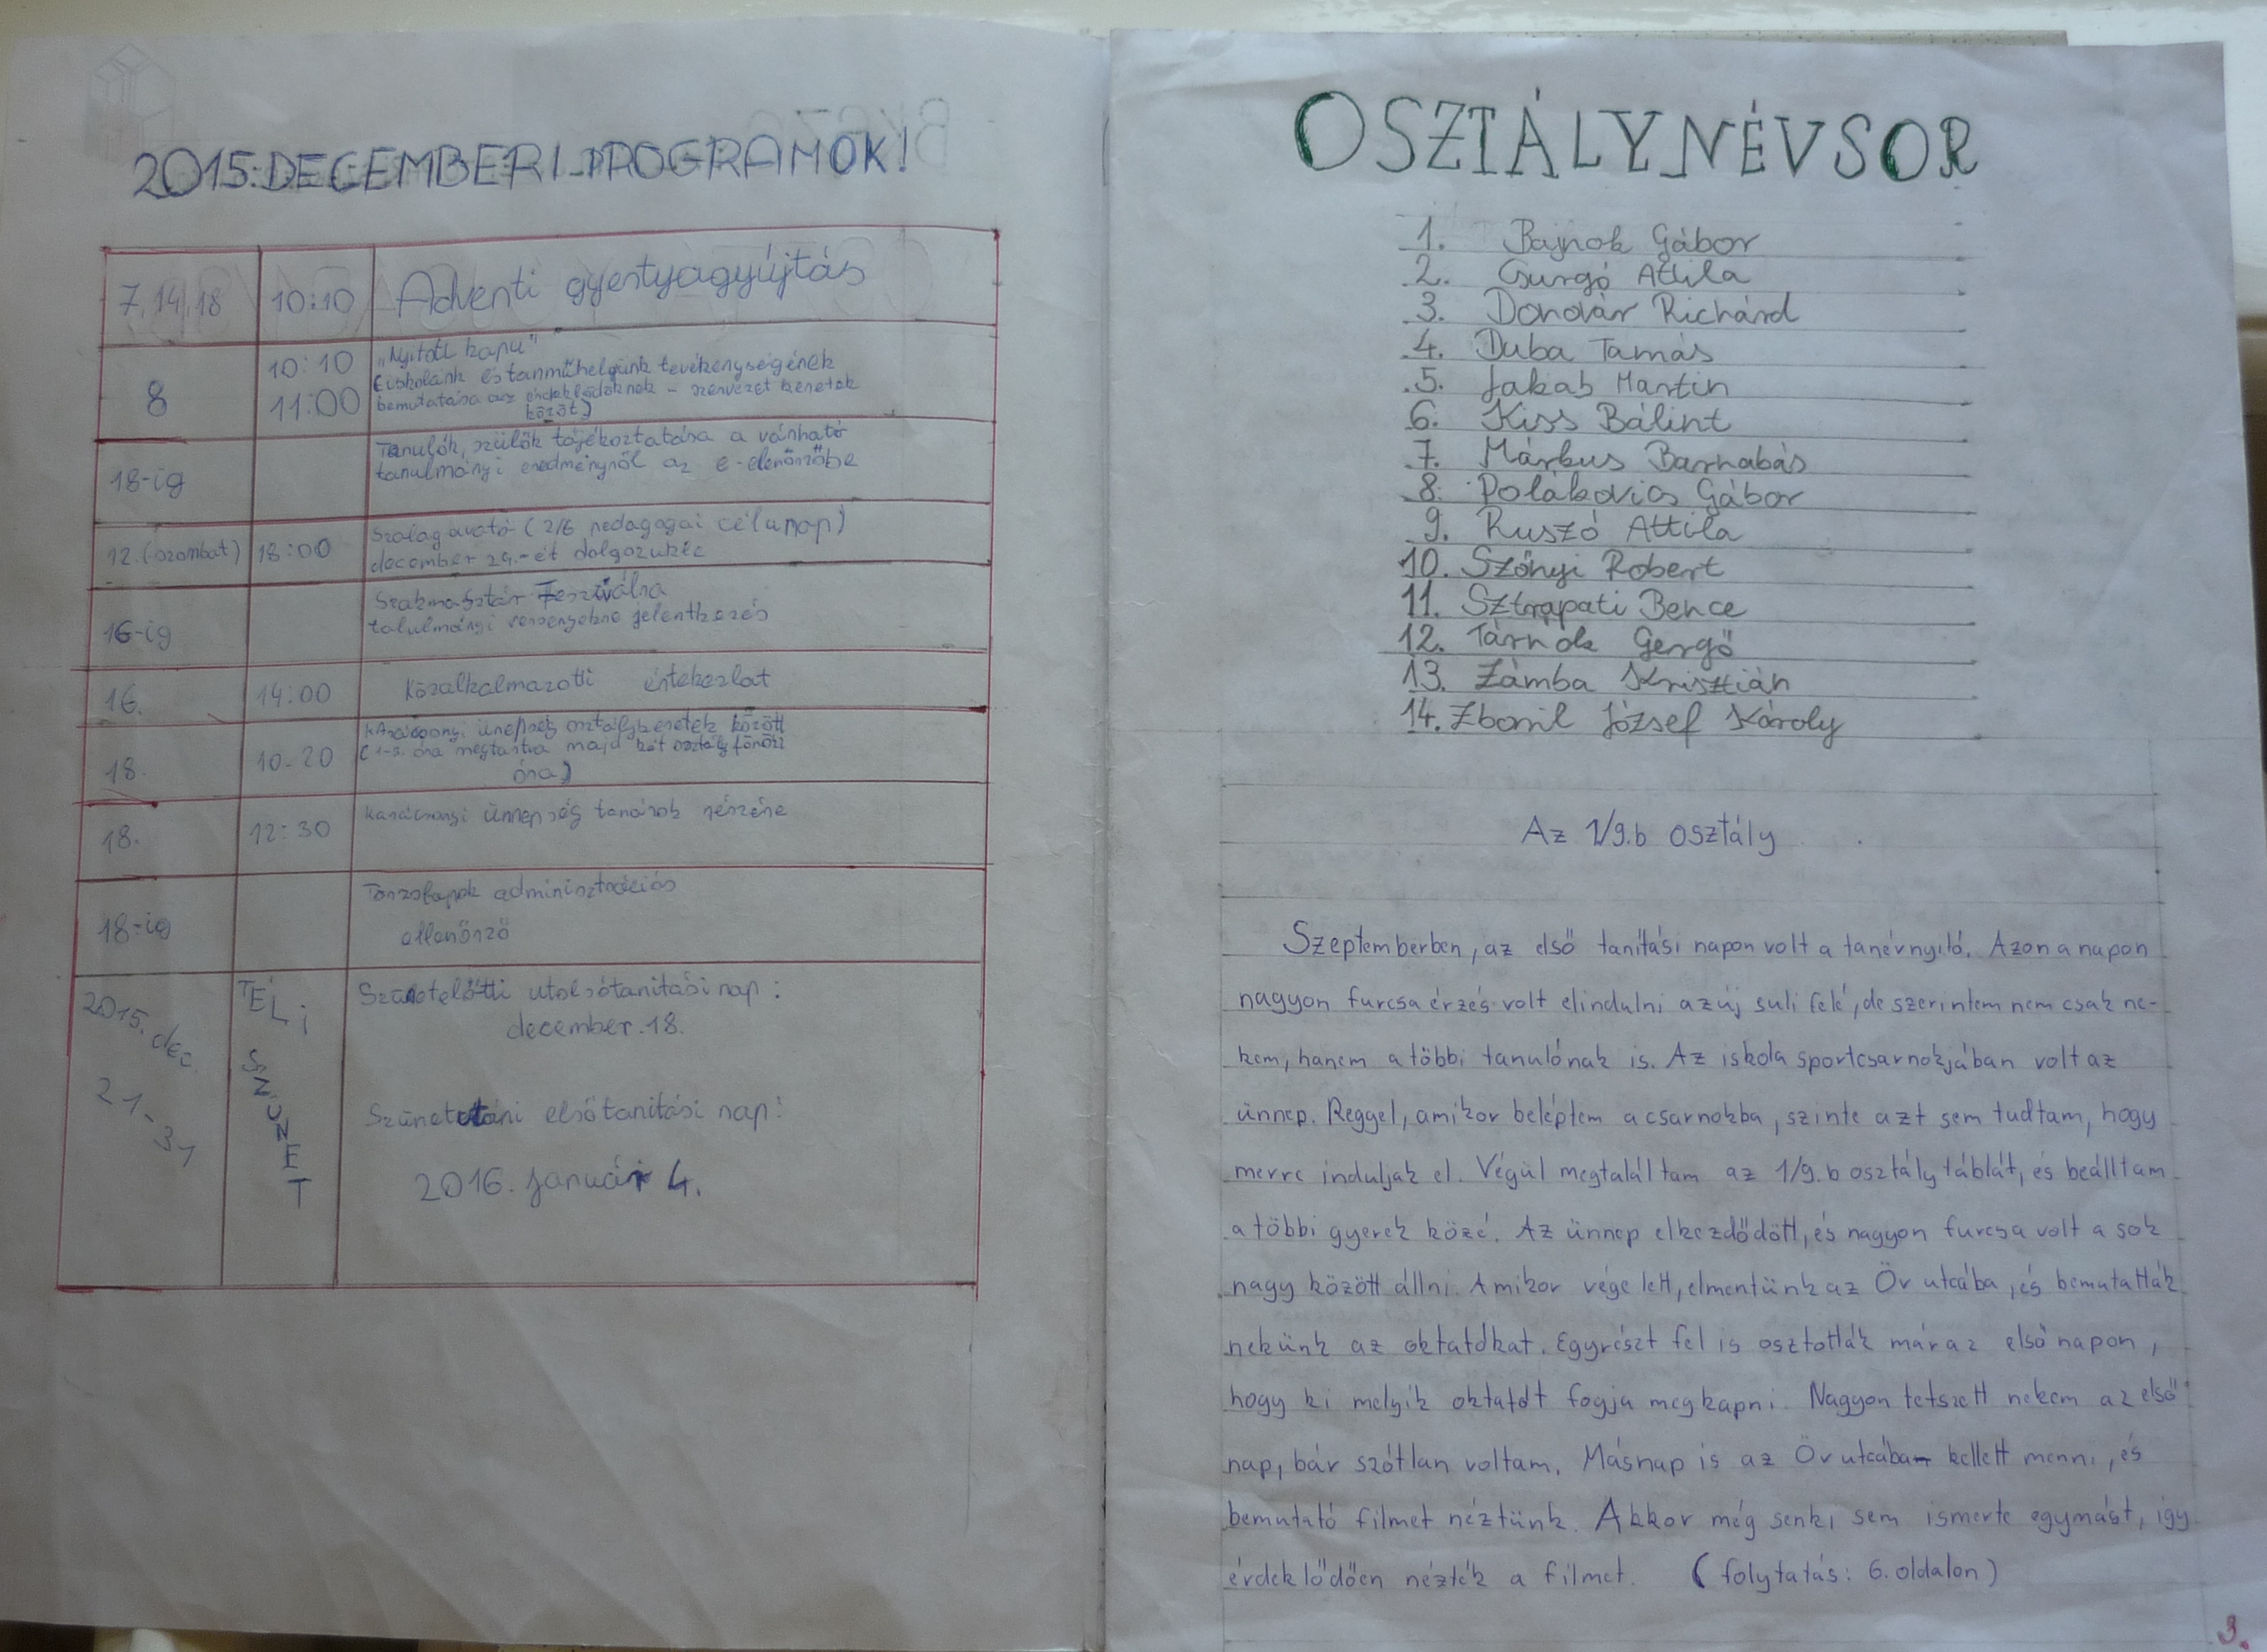 2015. DECEMBERI PROGRAMOK!
7, 14, 18 10:10 Adventi gyertyagyújtás
8 10:10 11:00 „Nyitott kapu"
(iskolánk és tanműhelyünk tevékenységének
bemutatása az érdeklődőknek - szervezet keretek
között)
18-ig Tanulók, szülők tájékoztatása a várható
tanulmányi eredményről az e-elenőrzőbe
12. (szombat) 18:00 Szalagavató (2/6 pedagogai célúnap)
december 24.-ét dolgozuk le
16-ig Szakma Sztár Fesztiválra
talulmányi versenyekre jelentkezés
16. 14:00 Közalkalmazotti értekezlat
18. 10-20 karácsonyi ünepség osztálykeretek között
(1-3. óra megtartva majd két osztályfőnöki
óra)
18. 12:30 karácsonyi ünnepség tanárok részére
18-ig Törzslapok adminisztrációs
ellenőrző
2015. dec. 21-31 TÉLi SZÜNET
Szünetelőtti utolsótanitási nap:
december.18.
Szünetutáni elsőtanitási nap:
2016. Január 4.
OSZTÁLYNÉVSOR
1. Bajnok Gábor
2. Csurgó Attila
3. Donovár Richárd
4. Duba Tamás
5. Jakab Martin
6. Kiss Bálint
7. Márkus Barnabás
8. Polákovics Gábor
9. Ruszó Attila
10. Szőnyi Robert
11. Sztrapati Bence
12. Tárnok Gergő
13. Zámba Krisztián
14. Zboril József Károly
Az 1/9.b osztály
Szeptemberben, az első tanítási napon volt a tanévnyitó. Azon a napon
nagyon furcsa érzés volt elindulni az új suli felé, de szerintem nem csak ne-
kem, hanem a többi tanulónak is. Az iskola sportcsarnokjában volt az
ünnep. Reggel, amikor beléptem a csarnokba, szinte azt sem tudtam, hogy
merre induljak el. Végül megtaláltam az 1/9.b osztály táblát, és beálltam
a többi gyerek közé. Az ünnep elkezdődött, és nagyon furcsa volt a sok
nagy között állni. Amikor vége lett, elmentünk az Öv utcába, és bemutatták
nekünk az oktatókat. Egyrészt fel is osztották már az első napon,
hogy ki melyik oktatót fogja megkapni. Nagyon tetszett nekem az első
nap, bár szótlan voltam. Másnap is az Öv utcába kellett menni, és
bemutató filmet néztünk. Akkor még senki sem ismerte egymást, így
érdeklődően nézték a filmet. (folytatás: 6. oldalon)
3.